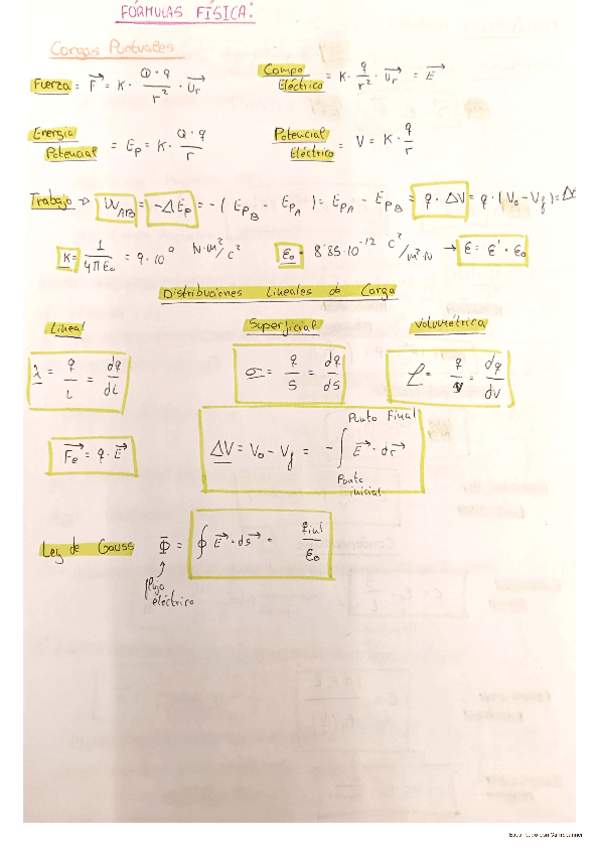 FÓRMULAS FÍSICA:
Cargas Puntuales
Fuerza = F⃗ = K · Q·q / r² · U⃗r
Campo Eléctrico = K · q / r² · U⃗r = E⃗
Energía Potencial = Ep = K · Q·q / r
Potencial Eléctrico = V = K · q / r
Trabajo → W_AB = -ΔEp = -( Ep_B - Ep_A ) = Ep_A - Ep_B = q · ΔV = q · (V₀ - Vf) =
K = 1 / 4πε₀ = 9·10⁹ N·m²/C²
ε₀ = 8'85·10⁻¹² C²/m²·N → ε = ε' · ε₀
Distribuciones Lineales de Carga
Lineal
Superficial
Volumétrica
λ = q / L = dq / dL
σ = q / S = dq / dS
ρ = q / V = dq / dV
F⃗e = q · E⃗
Punto Final
ΔV = V₀ - Vf = - ∫ E⃗ · dr⃗
Punto inicial
Ley de Gauss Φ = ∮ E⃗ · ds⃗ = q int / ε₀
flujo eléctrico